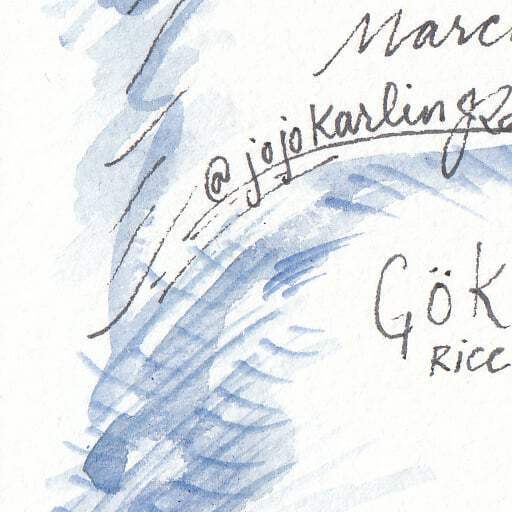 Marc
@jojokarlin
GÖK
RICC